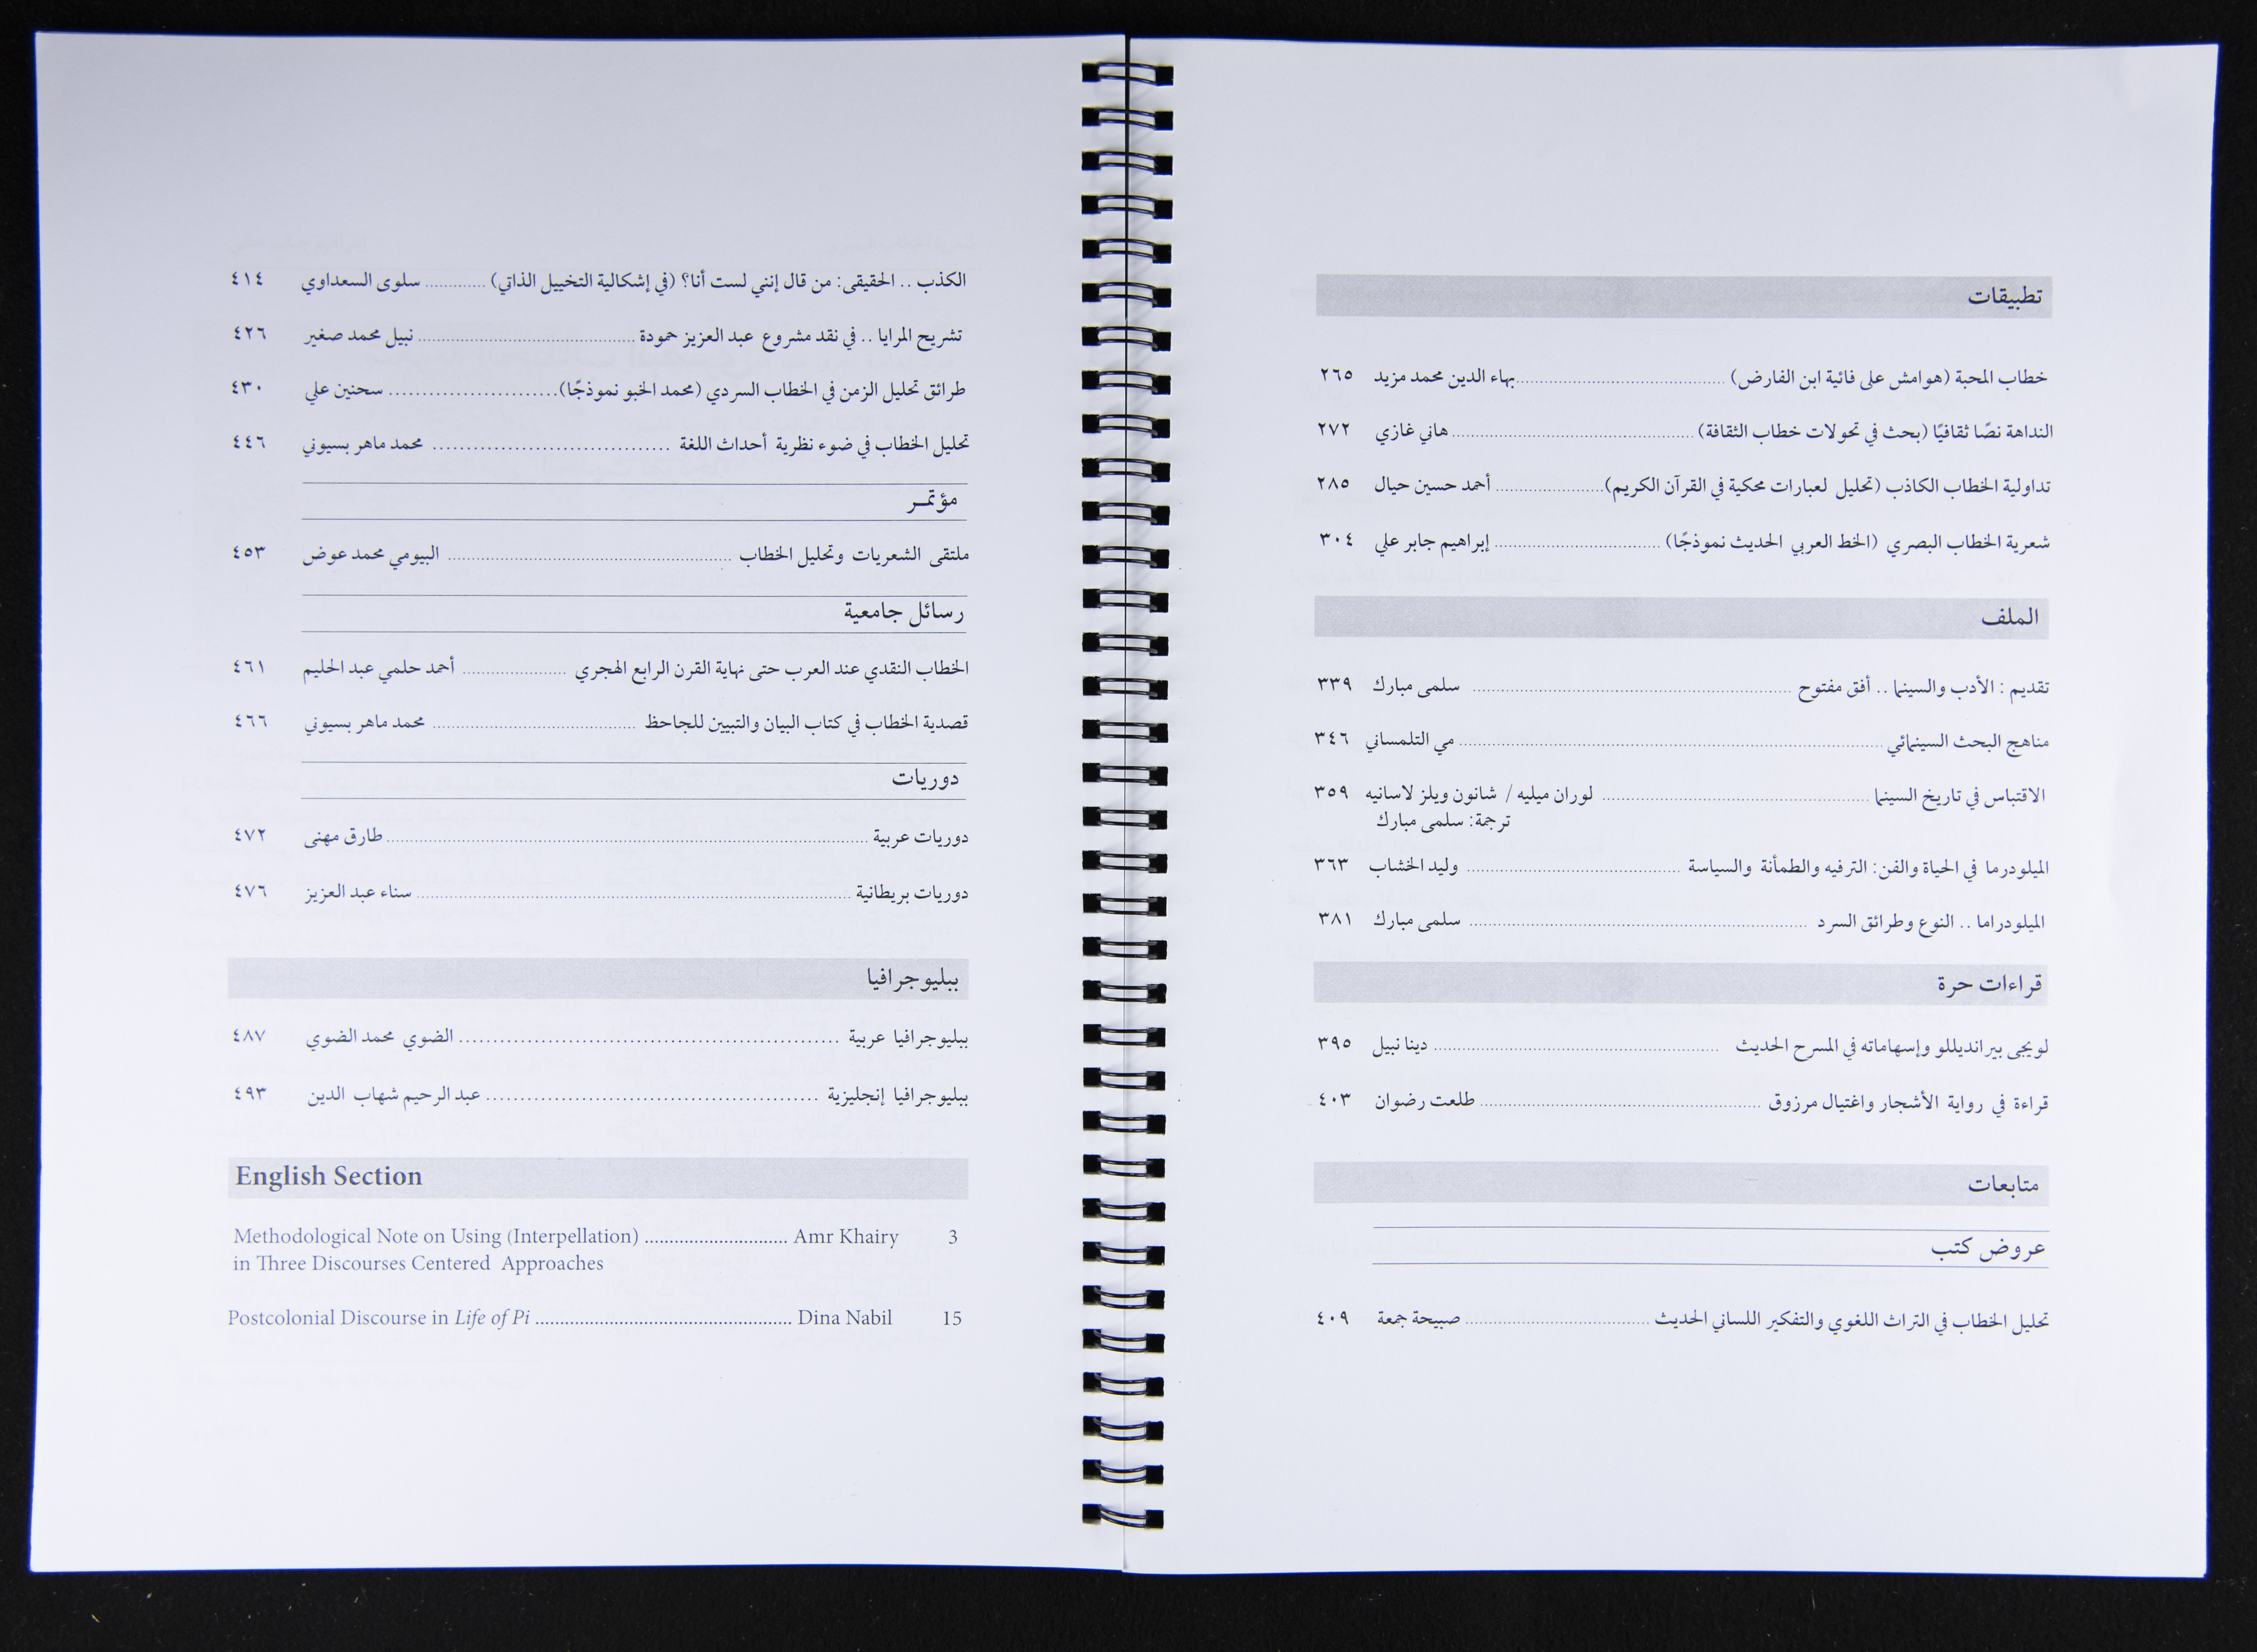 تطبيقات
خطاب المحبة (هوامش على فائية ابن الفارض) ........ بهاء الدين محمد مزيد ٢٦٥
النداهة نصًا ثقافيًا (بحث في تحولات خطاب الثقافة) ........ هاني غازي ٢٧٢
تداولية الخطاب الكاذب (تحليل لعبارات محكية في القرآن الكريم) ........ أحمد حسين حيال ٢٨٥
شعرية الخطاب البصري (الخط العربي الحديث نموذجًا) ........ إبراهيم جابر علي ٣٠٤
الملف
تقديم : الأدب والسينما .. أفق مفتوح ........ سلمى مبارك ٣٣٩
مناهج البحث السينمائي ........ مي التلمساني ٣٤٦
الاقتباس في تاريخ السينما ........ لوران ميليه / شانون ويلز لاسانيه ٣٥٩
ترجمة: سلمى مبارك
الميلودرما في الحياة والفن: الترفيه والطمأنة والسياسة ........ وليد الخشاب ٣٦٣
الميلودراما .. النوع وطرائق السرد ........ سلمى مبارك ٣٨١
قراءات حرة
لويجى بيرانديللو وإسهاماته في المسرح الحديث ........ دينا نبيل ٣٩٥
قراءة في رواية الأشجار واغتيال مرزوق ........ طلعت رضوان ٤٠٣
متابعات
عروض كتب
تحليل الخطاب في التراث اللغوي والتفكير اللساني الحديث ........ صبيحة جمعة ٤٠٩
الكذب .. الحقيقى: من قال إنني لست أنا؟ (في إشكالية التخييل الذاتي) ........ سلوى السعداوي ٤١٤
تشريح المرايا .. في نقد مشروع عبد العزيز حمودة ........ نبيل محمد صغير ٤٢٦
طرائق تحليل الزمن في الخطاب السردي (محمد الخبو نموذجًا) ........ سحنين علي ٤٣٠
تحليل الخطاب في ضوء نظرية أحداث اللغة ........ محمد ماهر بسيوني ٤٤٦
مؤتمـر
ملتقى الشعريات وتحليل الخطاب ........ البيومي محمد عوض ٤٥٣
رسائل جامعية
الخطاب النقدي عند العرب حتى نهاية القرن الرابع الهجري ........ أحمد حلمي عبد الحليم ٤٦١
قصدية الخطاب في كتاب البيان والتبيين للجاحظ ........ محمد ماهر بسيوني ٤٦٦
دوريات
دوريات عربية ........ طارق مهنى ٤٧٢
دوريات بريطانية ........ سناء عبد العزيز ٤٧٦
ببليوجرافيا
ببليوجرافيا عربية ........ الضوي محمد الضوي ٤٨٧
ببليوجرافيا إنجليزية ........ عبد الرحيم شهاب الدين ٤٩٣
English Section
Methodological Note on Using (Interpellation) ........ Amr Khairy 3
in Three Discourses Centered Approaches
Postcolonial Discourse in Life of Pi ........ Dina Nabil 15